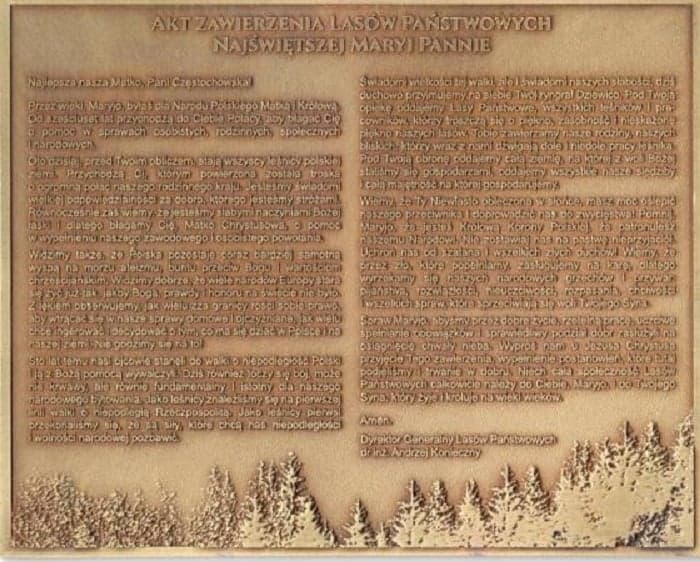 AKT ZAWIERZENIA LASÓW PAŃSTWOWYCH
NAJŚWIĘTSZEJ MARYI PANNIE
Najlepsza nasza Matko, Pani Częstochowska!
Przez wieki, Maryjo, byłaś dla Narodu Polskiego Matką i Królową.
Od sześciuset lat przychodzą do Ciebie Polacy, aby błagać Cię
o pomoc w sprawach osobistych, rodzinnych, społecznych
i narodowych.
Oto dzisiaj, przed Twoim obliczem, stają wszyscy leśnicy polskiej
ziemi. Przychodzą Ci, którym powierzona została troska
o ogromną połać naszego rodzinnego kraju. Jesteśmy świadomi
wielkiej odpowiedzialności za dobra, którego jesteśmy strażami.
Równocześnie zaś wiemy, że jesteśmy słabymi naczyniami Bożej
łaski i dlatego błagamy Cię, Matko Chrystusowa, o pomoc
w wypełnieniu naszego zawodowego i osobistego powołania.
Widzimy także, że Polska pozostaje coraz bardziej samotną
wyspą na morzu ateizmu, buntu przeciw Bogu i wartościom
chrześcijańskim. Widzimy dobrze, że wiele narodów Europy stara
się żyć już tak, jakby Boga, prawdy i honoru na świecie nie było.
Z lękiem obserwujemy, jak wielu zza granicy rości sobie prawo,
by wtrącać się w nasze sprawy domowe i ojczyźniane, jak wielu
chce ingerować i decydować o tym, co ma się dziać w Polsce i na
naszej ziemi. Nie godzimy się na to!
Sto lat temu nasi ojcowie stanęli do walki o niepodległość Polski
i ją z Bożą pomocą wywalczyli. Dziś również toczy się bój, może
nie krwawy, ale równie fundamentalny i istotny dla naszego
narodowego bytowania. Jako leśnicy znaleźliśmy się na pierwszej
linii walki o niepodległą Rzeczpospolitą. Jako leśnicy pierwsi
przekonaliśmy się, że są siły, które chcą nas niepodległości
i wolności narodowej pozbawić.
Świadomi wielkości tej walki, ale i świadomi naszych słabości, dziś
duchowo przyjmujemy na siebie Twój ryngraf Dziewico. Pod Twoją
opiekę oddajemy Lasy Państwowe, wszystkich leśników i pra-
cowników, którzy troszczą się o piękno, zasobność i nieskażone
piękno naszych lasów. Tobie zawierzamy nasze rodziny, naszych
bliskich, którzy wraz z nami dźwigają dole i niedole pracy leśnika.
Pod Twoją obronę oddajemy całą ziemię, na której z woli Bożej
staliśmy się gospodarzami, oddajemy wszystkie nasze siedziby
i cały majątek na której gospodarujemy.
Wiemy, że Ty Niewiasto obleczona w słońce, masz moc oślepić
naszego przeciwnika i doprowadzić nas do zwycięstwa! Pomnij,
Maryjo, że jesteś Królową Korony Polskiej, że patronujesz
naszemu Narodowi! Nie zostawiaj nas na pastwę nieprzyjaciół.
Uchroń nas od szatana i wszelkich złych duchów! Wiemy, że
przez zło, które popełniamy, zasługujemy na karę, dlatego
wyrzekamy się naszych narodowych grzechów i wad:
pijaństwa, rozwiązłości, nieuczciwości, rozpasania, chciwości
i wszelkich spraw, które sprzeciwiają się woli Twojego Syna.
Spraw Maryjo, abyśmy przez dobre życie, rzetelną pracę, uczciwe
spełnianie obowiązków i sprawiedliwy podział dóbr, zasłużyli na
osiągnięcie chwały nieba. Wyproś nam u Jezusa Chrystusa
przyjęcie Tego zawierzenia, wypełnienie postanowień, które tutaj
podjęliśmy i trwanie w dobru. Niech cała społeczność Lasów
Państwowych całkowicie należy do Ciebie, Maryjo, i do Twojego
Syna, który żyje i króluje na wieki wieków.
Amen.
Dyrektor Generalny Lasów Państwowych
dr inż. Andrzej Konieczny